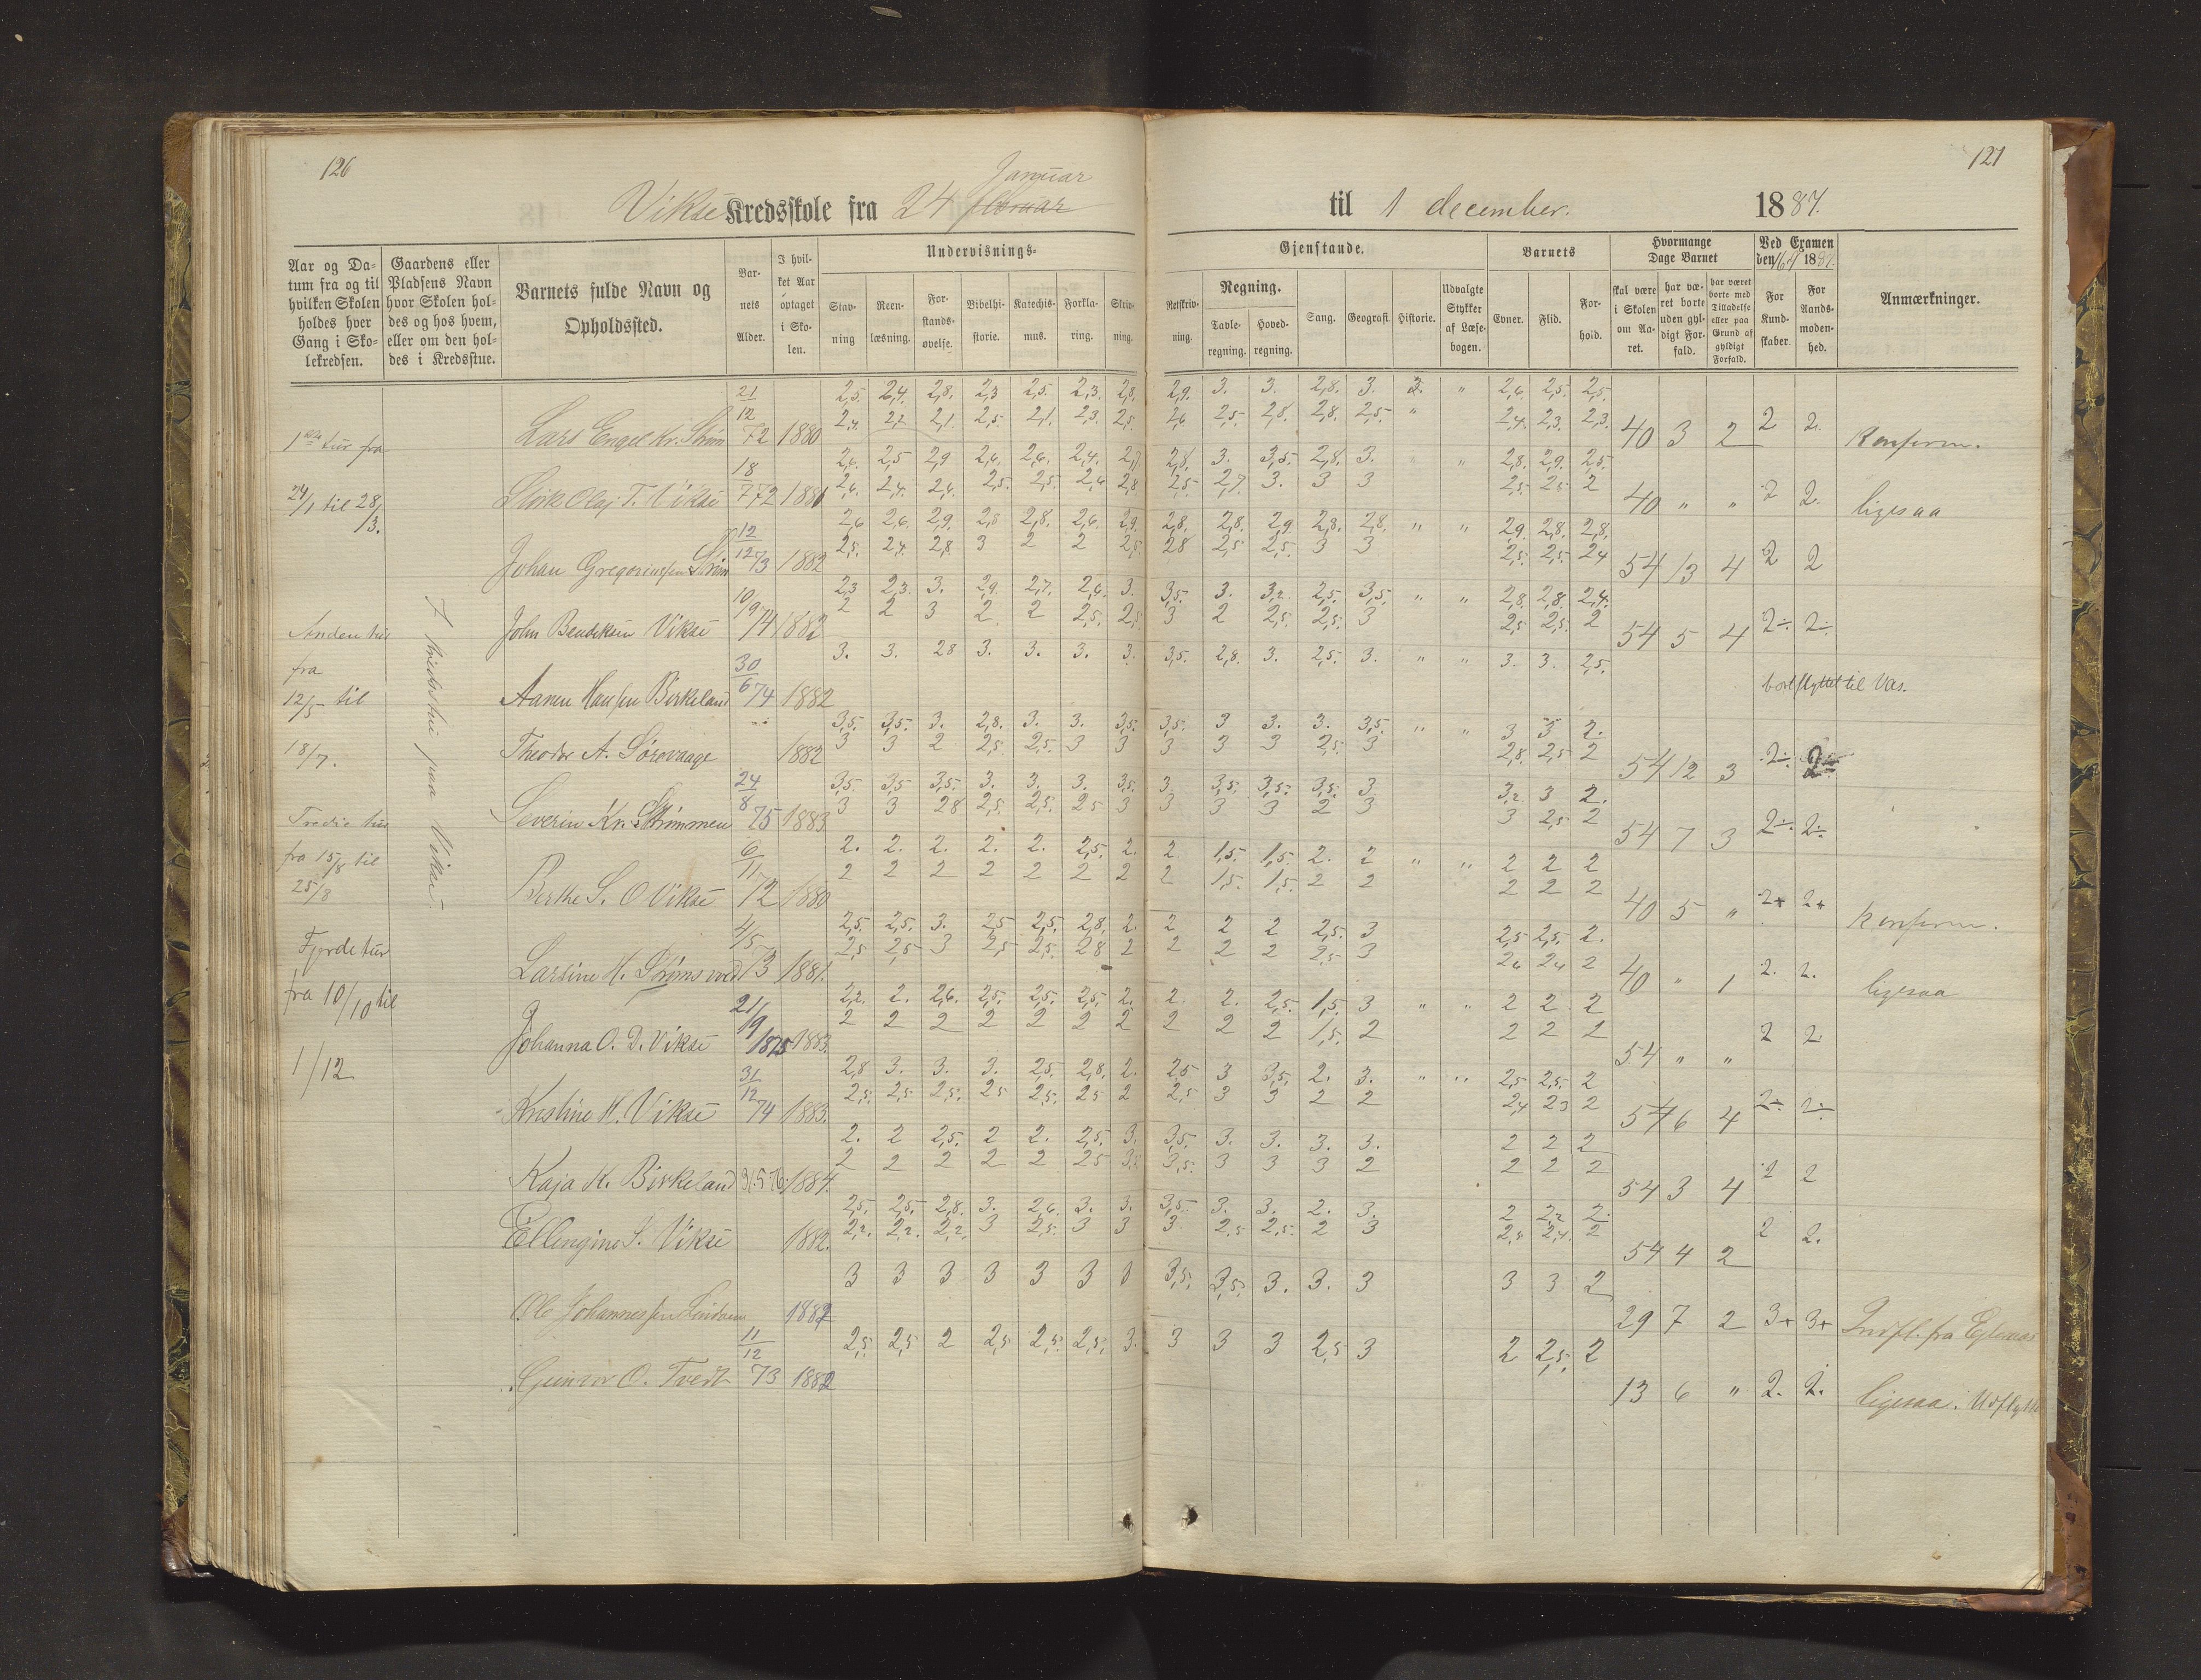 126
127
Januar
Vikse Kredsskole fra 24 februar til 1 december. 1887.
Aar og Datum fra og til hvilken Skolen holdes hver Gang i Skolekredsen.
Gaardens eller Pladsens Navn hvor Skolen holdes og hos hvem, eller om den holdes i Kredsstue.
Barnets fulde Navn og Opholdssted.
Barnets Alder.
I hvilket Aar optaget i Skolen.
Undervisnings-
Gjenstande.
Stavning
Reenlæsning.
Forstandsøvelse.
Bibelhistorie.
Katechismus.
Forklaring.
Skrivning.
Retskrivning.
Regning.
Tavleregning.
Hovedregning.
Sang.
Geografi.
Historie.
Udvalgte Stykker af Læsebogen.
Barnets
Evner.
Flid.
Forhold.
Hvormange Dage Barnet
skal være i Skolen om Aaret.
har været borte uden gyldigt Forfald.
har været borte med Tilladelse eller paa Grund af gyldigt Forfald.
Ved Examen den 16/4 1887.
For Kundskaber.
For Aandsmodenhed.
Anmærkninger.
1ste tur fra
24/1 til 28/3.
Anden tur
fra
12/5 til
18/7.
Tredie tur
fra 15/8 til
25/8
Fjerde tur
fra 10/10 til
1/12
I kredsstue paa Vikse
2,5. 2,4. 2,8. 2,3 2,5. 2,3. 2,8. 2,9. 3. 3. 2,8. 3. 3. " 2,6. 2,5. 2,5.
Lars Engel Kr. Strøm 21/12 72 1880 40 3 2 2 2. Konfirm.
2,6. 2,5 2,9 2,6. 2,6. 2,4. 2,7 2,8. 3. 3,5. 2,8. 3. " " 2,8. 2,9. 2,5.
Olaj T. Vikse 18/7 72 1881 40 " " 2 2. ligesaa
2,6 2,6. 2,9. 2,8 2,8. 2,6. 2,9. 2,8. 2,8. 2,9 2,8. 2,8. " " 2,9. 2,8. 2,8.
2,5. 2,4. 2,8 3 2 2 2,5. 28 2,5 2,5. 3 3 2,5. 2,5. 24
Johan Gregoriussen Strøm 12/12 73 1882 54 13 4 2 2
2,3 2,3. 3. 2,9. 2,7. 2,6. 3. 3,5. 3. 3,2. 2,5. 3,5. " " 2,8. 2,8. 2,4.
2 2 3 2 2 2,5. 2,5. 3 2 2,5. 2,5. 3 2,5 2,5. 2
John Bendiksen Vikse 10/9 74 1882 54 5 4 2÷ 2÷
3. 3. 28 3. 3. 3. 3. 3,5. 2,8. 3. 2,5. 3. " " 3. 3. 2,5.
Aanen Hansen Birkeland 30/6 74 1882 bortflyttet til Vas.
3,5. 3,5. 3. 2,8. 3. 3. 3,5. 3,5. 3 3. 3. 3,5. " " 3 3 2.
3 3 2 2,5 2,5. 3 3 3 3 3 2,5. 3 2,8. 2,5 2
Theodor A. Sørevaage 1882 54 12 3 2÷ 2÷
3,5. 3,5 3,5. 3. 3. 3. 3,5. 3. 3,5. 3,5. 3,5. 3. 3,2. 3 2.
3 3 28 2,5. 2,5. 25 3 3 3 3 2 3 3 2,5 2
Severin Kr. Strømmen 24/8 75 1883 54 7 3 2÷ 2÷
2. 2. 2. 2. 2. 2,5. 2. 2. 1,5. 1,5. 2. 2 " " 2 2 2
2 2 2 2 2 2 2 2 1,5. 1,5. 2 2 2 2 2
Berthe S. O Vikse 6/11 72 1880 40 5 " 2+ 2+ Konfirm.
2,5. 2,5. 3. 2,5 2,5. 2,8. 2. 2 2 2 2,5. 3 2,5 2,5. 2.
2,5 2,5 3 2,5 2,5. 28 2 2 2 2 2,5 3 26 24 2
Larsine H. Strømsvod 4/5 73 1881. 40 " 1 2. 2. ligesaa
2,2. 2. 2,6. 2,5. 2,5. 2,5. 2. 2. 2. 2,5. 1,5. 3 " " 2 2 2
2 2 2 2 2 2 2 2 2 2 1,5. 2 2 2 2
Johanna O. D. Vikse 21/9 1875 1883. 54 " " 2 2.
2,8 3. 3. 3. 2,5. 2,8. 2. 2,5 3 3,5. 2. 3. " " 2,5 2,5. 2
2,5. 2,5 2,5. 25 2,5. 25 2 2,5 3 3 2 2 2,4 23 2
Kristine M. Vikse 31/12 74 1883. 54 6 4 2÷ 2÷
2. 2 2,5. 2 2. 2,5. 3. 3,5. 3. 3. 3. 3. 2 2 2
2 2 2 2 2 25 3,5 3,5. 3 3 3 2 2 2 2
Kaja K. Birkeland 31.5.76. 1884. 54 3 4 2 2
2,5. 2,5. 2,8. 3. 2,6. 3. 3. 3,5 3. 3. 2. 3. 2 2,2 2.
2,2. 2,2. 2,2. 3 2,5. 3 3 3. 2,5 2,5. 2 3 2,4 2,4. 2
Ellengine S. Vikse 1882. 54 4 2 2 2.
3 3 3 3 3 3 3 3,5. 3,5. 3. 3. 3 3 3 2
Ole Johannessen 1882 29 7 2 3+ 3+ Indfl. fra
2,5. 2,5 2 2,5 2,5. 2,5. 3. 3 3 3 2,5 3 2 2,5. 2
Gunvor O. Tvedt 11/12 73 1882 13 6 " 2. 2. ligesaa. Udflyttet